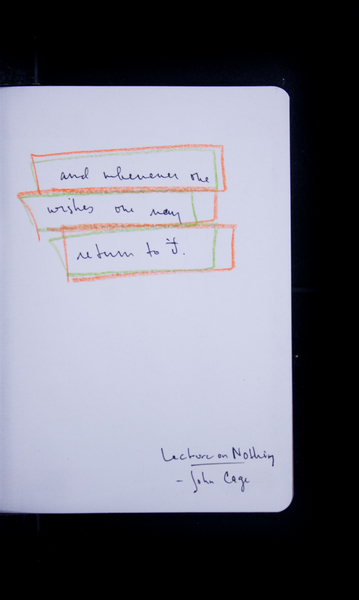 and whenever one
wishes one may
return to it.
Lecture on Nothing
- John Cage